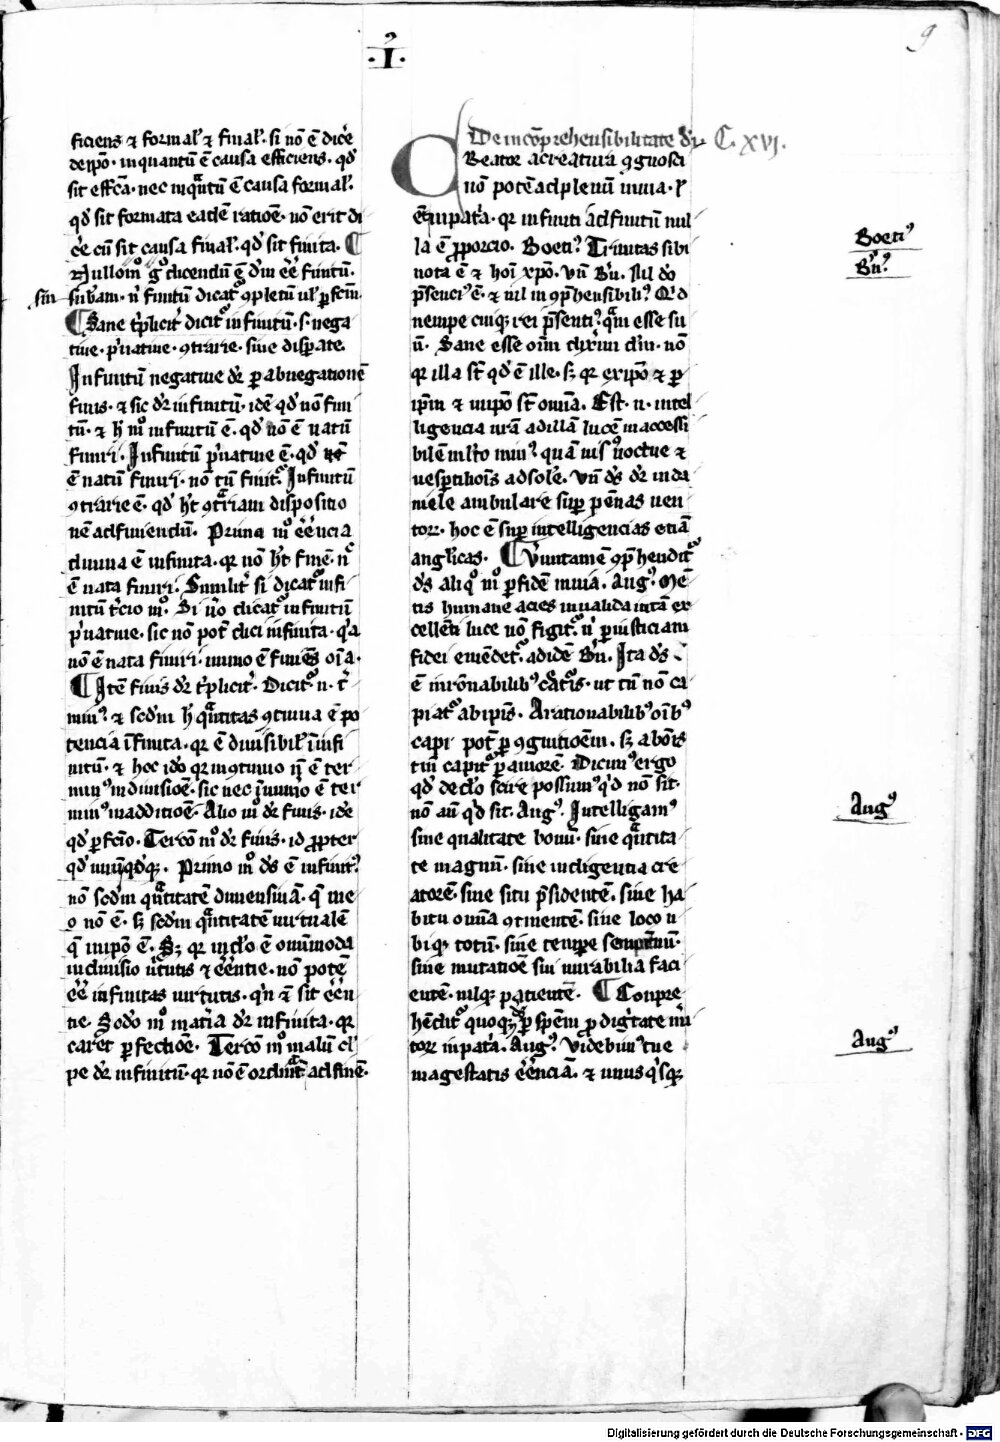 ·I·
9
ficiens ⁊ formal' ⁊ final'. si nō ē dicē
de ipō· inquantū ē causa efficiens. qd'
sit effcā· nec inqᵃntū ē causa formal'.
qd' sit formata eadē ratiōe· nō erit di
cē cū sit causa final'. qd' sit finita. ¶
Nullomº gº dicendū ē dm̄ eē finitū.
sin
sūbam· n' finitū dicatʳ ꝯpletū ul' ꝑfcm̄.
¶ Sane tͥplicit' dicitʳ infinitū· s· nega
tiue· pͥuatiue· ꝯtrarie· siue disꝑate.
Infinitū negatiue dr̄ ꝑ abnegationē
finis· ⁊ sic dr̄ infinitū· idē qd' nō fini
tū· ⁊ h̄ mº infinitū ē· qd' nō ē natū
finiri· Infinitū pͥuatiue ē· qd'
ē natū finiri· nō tn̄ finitʳ. Infinitū
ꝯtrarie ē· qd' h̄t ꝯtͣriam dispositio
nē ad finiendū. Primo mº eēncia
diuina ē infinita· qr nō h̄t finē· nͨ
ē nata finiri· Similit' si dicatʳ infi
nitū tͨcio mº. Si uͦo dicatʳ infinitū
pͥuatiue· sic nō potͭ dici infinita· qͥa
nō ē nata finiri· immo ē finiēs oīa·
¶ Itē finis dr̄ tͥplicit'. Dicitʳ n· tͤ
min⁹ ⁊ scdm̄ h̄ qᵃntitas ꝯtinua ē po
tencia īfinita· qr ē diuisibil' ī infi
nitū· ⁊ hoc idō qr in ꝯtinuo ñ ē ter
min⁹ in diuisiōe· sic nec ī num̄o ē ter
min⁹ in additiōe· Alio mº dr̄ finis· idē
qd' ꝑfcīo· Tercō mº dr̄ finis· id ꝓpter
qd' unūqd'qꝫ. Primo mº ds̄ ē infinit⁹
nō scdm̄ qᵃntitatē dimensiuā· q̄ in e
o nō ē· sꝫ scdm̄ qᵃntitatē uirtualē
q̄ in ipō ē· Sꝫ qr in dō ē omīmoda
indiuisio uͥtutis ⁊ eēntie· nō potē
eē infinitas uirtutis· qͥn ⁊ sit eēn
tie· Scdo mº matͥia dr̄ infinita· qr
caret ꝑfectiōe· Tercō mº malū cl'
pe dr̄ infinitū· qr nō ē ordinatᵃ ad finē·
De incōprehensibilitate dͥ C. XVI.
CReator a creatura ꝯgnosci
nō potē ad plenū in uia· l'
ē in patͥa· qr infiniti ad finitū nul
la ē ꝓporcio. Boeti⁹ Trinitas sibi
nota ē ⁊ hoī xpō· Vn̄ Bn̄. Nil dō
pͤsenci⁹ ē· ⁊ nil in ꝯpͤhensibili⁹ Qͥd
nempe cuiqꝫ rei pͤsenti⁹ qᵃm esse su
ū· Sane esse oīm dixim dm̄· nō
qr illa st̄ qd' ē ille· sꝫ qr ex ipō ⁊ ꝑ
ipm̄ ⁊ in ipō st̄ omīa. Est· n· intel
ligencia nr̄a ad illā lucē inaccessi
bilē ml̄to min⁹ quā uis⁹ noctue ⁊
uesꝑtilioīs ad solē. Vn̄ ds̄ dr̄ in da
niele ambulare suꝑ pēnas uen
torꝝ· hoc ē suꝑ intelligencias etiā
anglīcas· ¶ Vͥuntamē ꝯpͤhenditʳ
ds̄ aliqº mº ꝑ fidē in uia· Aug⁹. Mē
tis humane acies inualida in tā ex
cellēti luce nō figitʳ· nͥ ꝑ iusticiam
fidei emēdetʳ· ad idē Bn̄. Ita ds̄
ē in rōnabilib⁹ cͣatͥis· ut tn̄ nō ca
piatʳ ab ipīs. A rationabilib⁹ oīb⁹
capi potͭ ꝑ ꝯgnitiōem· sꝫ a bonis
tm̄ capitʳ ꝑ amorē· Dicim⁹ ergo
qd' de dō scire possum⁹ qͥd nō sit·
nō aū qͥd sit· Aug⁹. Intelligam⁹
sine qualitate bonū· sine qᵃntita
te magnū· sine indigentia cre
atorē· sine situ pͤsidentē· sine ha
bitu omīa ꝯtinentē· sine loco u
biqꝫ totū· sine tempore sempiternū·
sine mutatiōe sui mutabilia faci
entē· nilqꝫ patientē. ¶ Conpre
hēditʳ quoqꝫ ds̄ ꝑ spēm ꝓ dignitate mͥi
torꝝ in patͥa· Aug⁹. Videbim⁹ tue
magestatis eēnciā· ⁊ unusqͥsqꝫ
Boeti⁹
Bn̄⁹
Aug⁹
Aug⁹
Digitalisierung gefördert durch die Deutsche Forschungsgemeinschaft · DFG